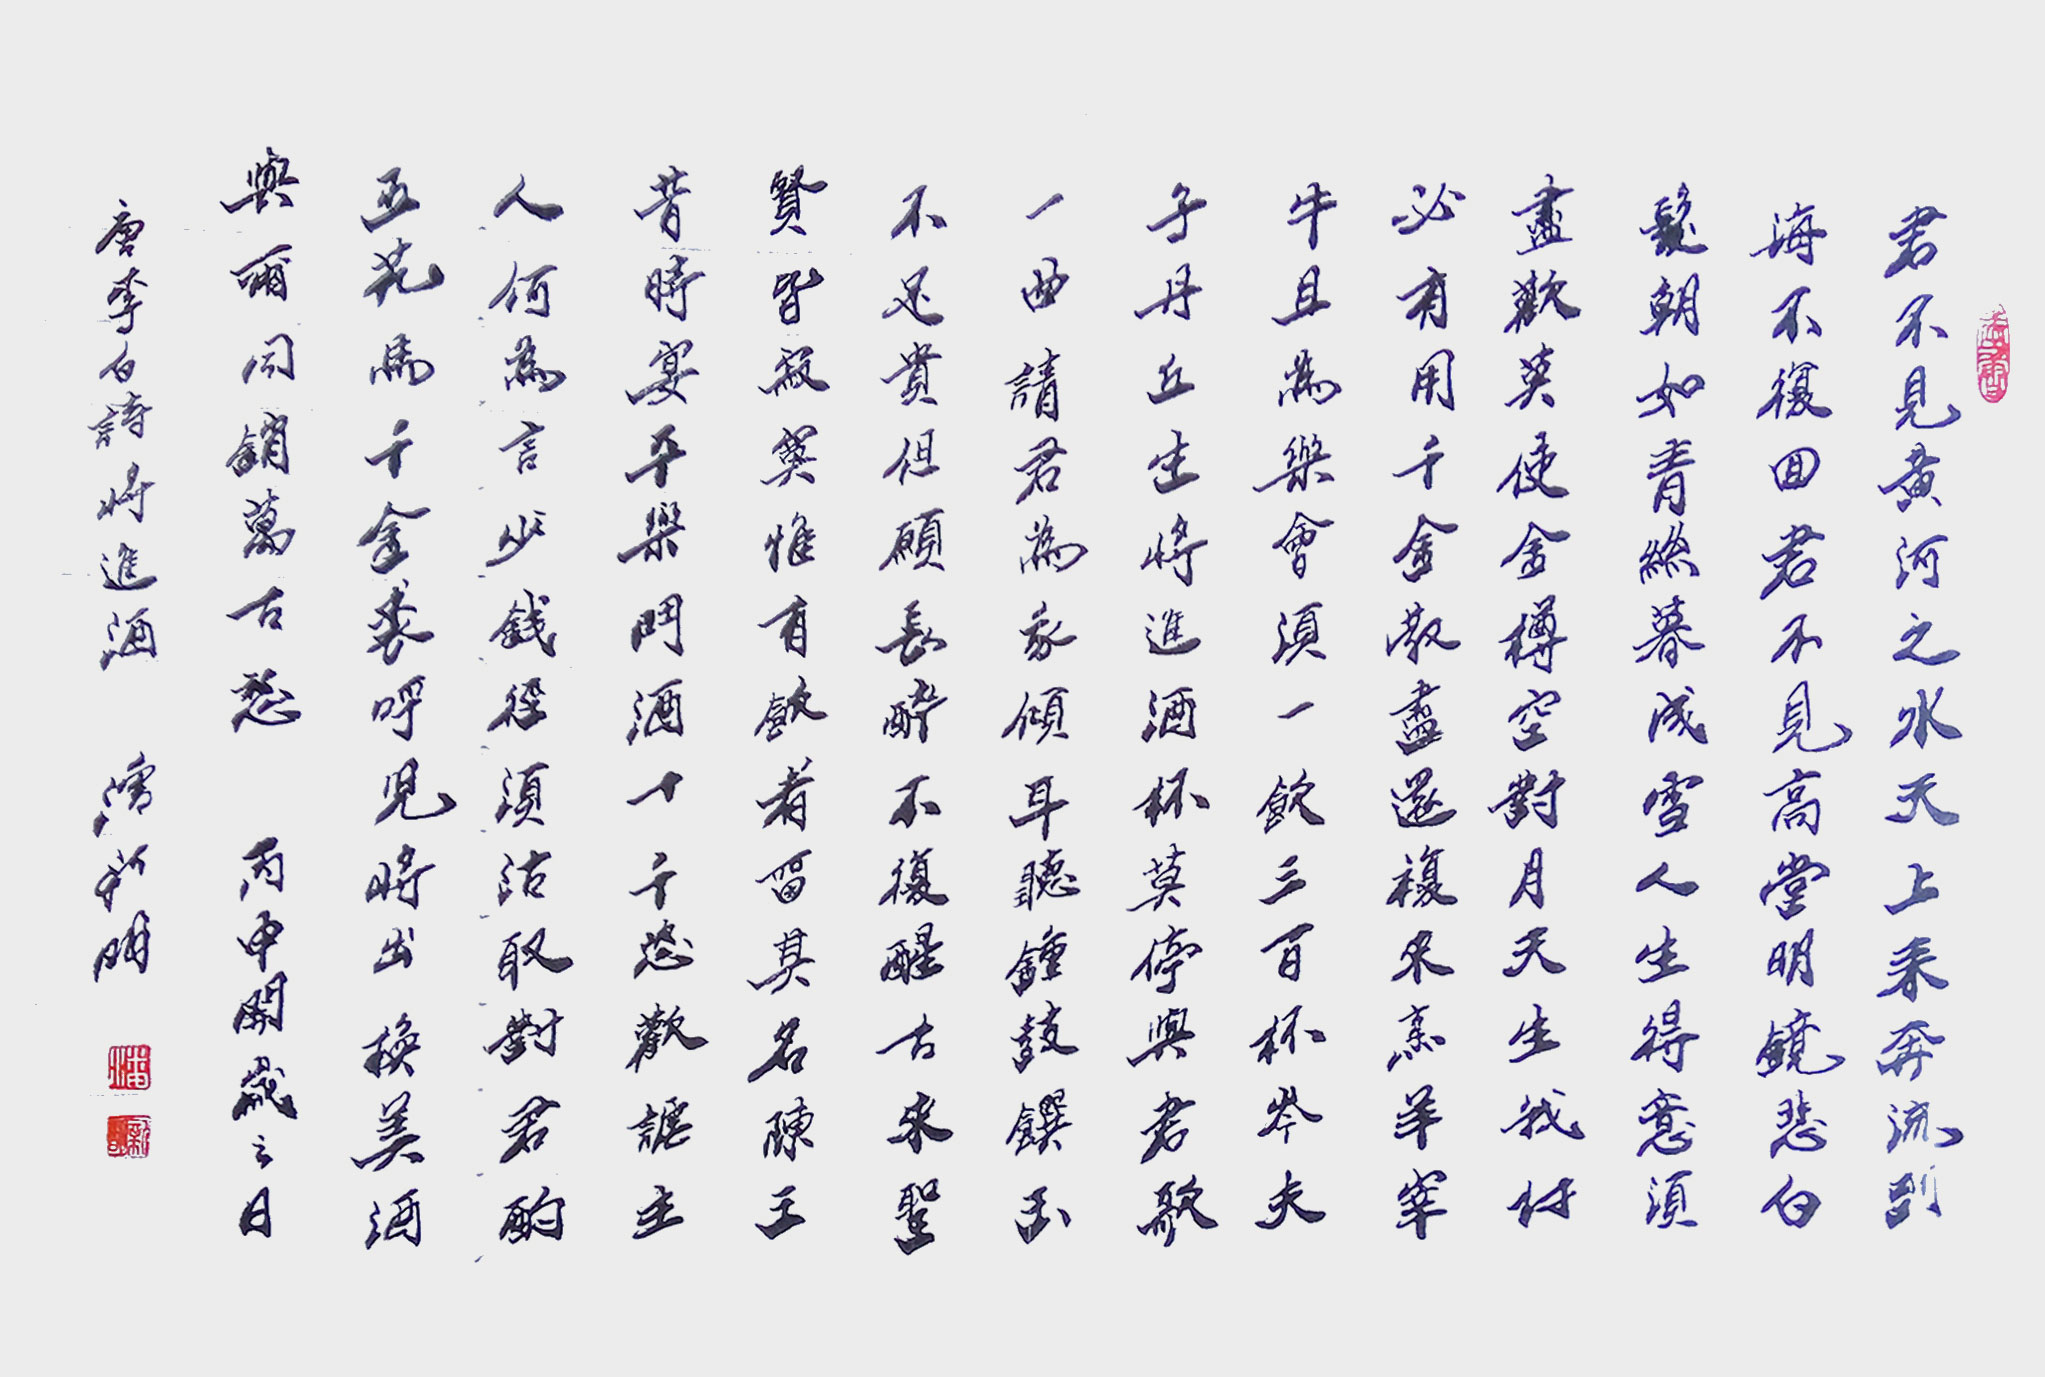 君不見黃河之水天上来奔流到
海不復回君不見高堂明鏡悲白
髮朝如青絲暮成雪人生得意須
盡歡莫使金樽空對月天生我材
必有用千金散盡還複来烹羊宰
牛且為樂會須一飲三百杯岑夫
子丹丘生將進酒杯莫停與君歌
一曲請君為我傾耳聽鐘鼓饌玉
不足貴但願長醉不復醒古来聖
賢皆寂寞惟有飲者留其名陳王
昔時宴平樂鬥酒十千恣歡謔主
人何為言少錢徑須沽取對君酌
五花馬千金裘呼兒將出換美酒
與爾同銷萬古愁 丙申開歲之日
唐李白詩將進酒 潘新明
潘